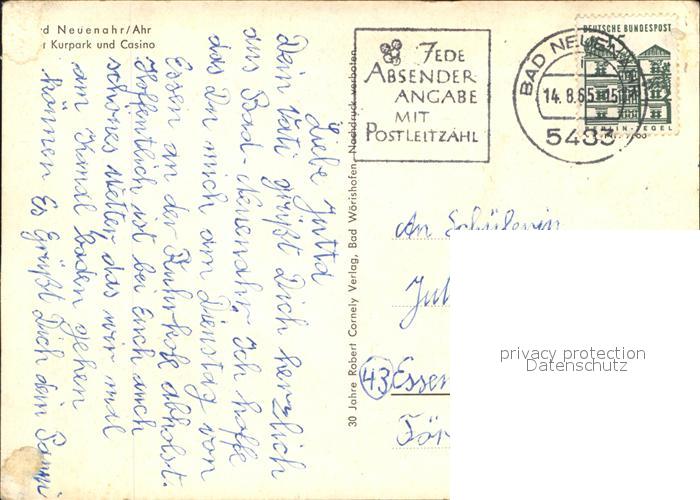 d Neuenahr/Ahr
r Kurpark und Casino
Liebe Jutta
Dein Vati grüßt Dich herzlich
aus Bad-Neuenahr, Ich hoffe
das Du mich am Dienstag von
Essen an der Ruhrhofz abholst.
Hoffentlich ist bei Euch auch
schönes Wetter, das wir mal
am Kanal baden gehen
können Es Grüßt Dich dein
30 Jahre Robert Cornely Verlag, Bad Wörishofen, Nachdruck verboten
JEDE
ABSENDER
ANGABE
MIT
POSTLEITZAHL
BAD NEUENAHR
14.8.65
5483
DEUTSCHE BUNDESPOST
15
BERLIN-TEGEL
An Schülerin
Jul
(43) Essen
För
privacy protection
Datenschutz